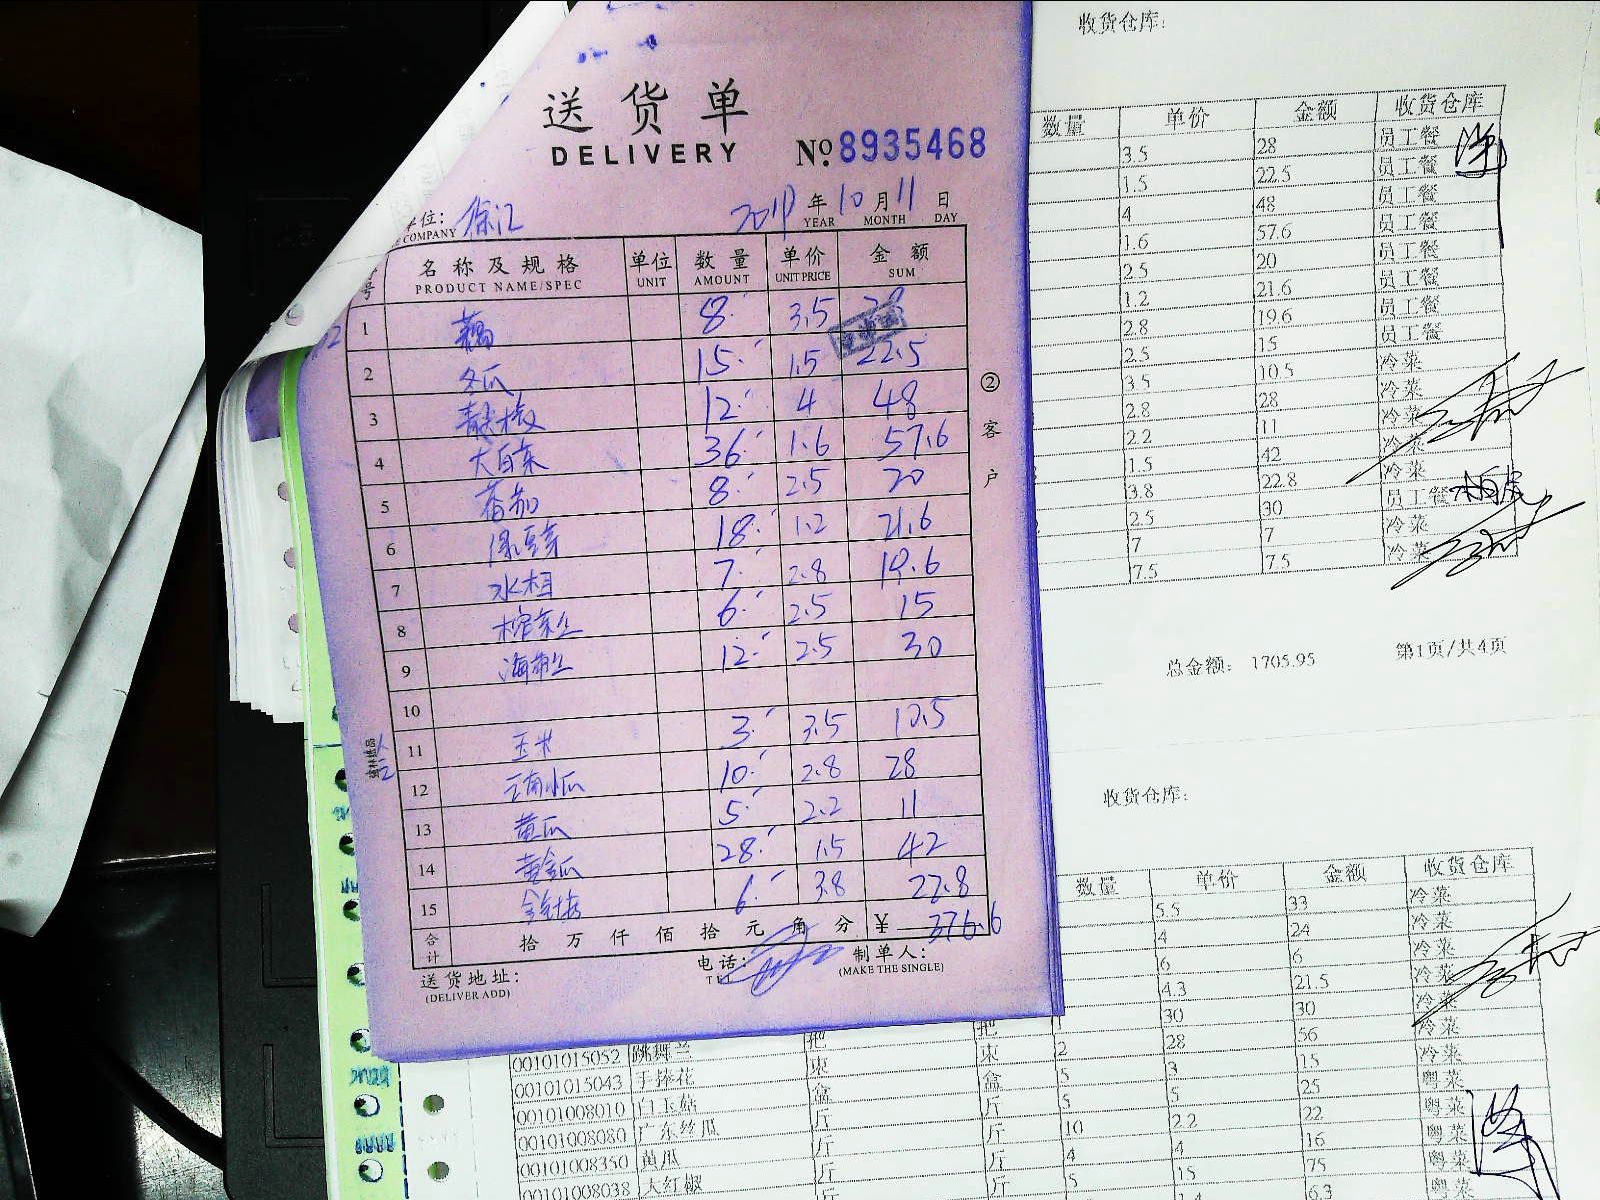 送货单
DELIVERY
No. 8935468
单位: 徐汇 2019年10月11日
COMPANY YEAR MONTH DAY
号 名称及规格 单位 数量 单价 金额
PRODUCT NAME/SPEC UNIT AMOUNT UNIT PRICE SUM
1 8 3.5 28
2 冬瓜 15 1.5 22.5
3 青尖椒 12 4 48
4 大白菜 36 1.6 57.6
5 番茄 8 2.5 20
6 绿豆芽 18 1.2 21.6
7 水 7 2.8 19.6
8 榨菜丝 6 2.5 15
9 海带丝 12 2.5 30
10
11 玉米 3 3.5 10.5
12 云南小瓜 10 2.8 28
13 黄瓜 5 2.2 11
14 黄金瓜 28 1.5 42
15 金针菇 6 3.8 22.8
合计 拾万仟佰拾元角分 ¥ 376.6
送货地址: 电话: 制单人:
(DELIVER ADD) (MAKE THE SINGLE)
②客户
收货仓库:
数量 单价 金额 收货仓库
3.5 28 员工餐
1.5 22.5 员工餐
4 48 员工餐
1.6 57.6 员工餐
2.5 20 员工餐
1.2 21.6 员工餐
2.8 19.6 员工餐
2.5 15 员工餐
3.5 10.5 冷菜
2.8 28 冷菜
2.2 11 冷菜
1.5 42 冷菜
3.8 22.8 冷菜
2.5 30 员工餐
7 7 冷菜
7.5 7.5 冷菜
总金额: 1705.95 第1页/共4页
收货仓库:
数量 单价 金额 收货仓库
5.5 33 冷菜
4 24 冷菜
6 6 冷菜
4.3 21.5 冷菜
把 1 30 30 冷菜
00101015052 跳舞兰 束 2 28 56 冷菜
00101015043 手捧花 束 盒 5 3 15 冷菜
00101008010 白玉菇 盒 斤 5 5 25 粤菜
00101008080 广东丝瓜 斤 10 2.2 22 粤菜
00101008350 黄瓜 斤 斤 4 4 16 粤菜
00101008038 大红椒 斤 斤 5 15 75 粤菜
6.3 粤菜